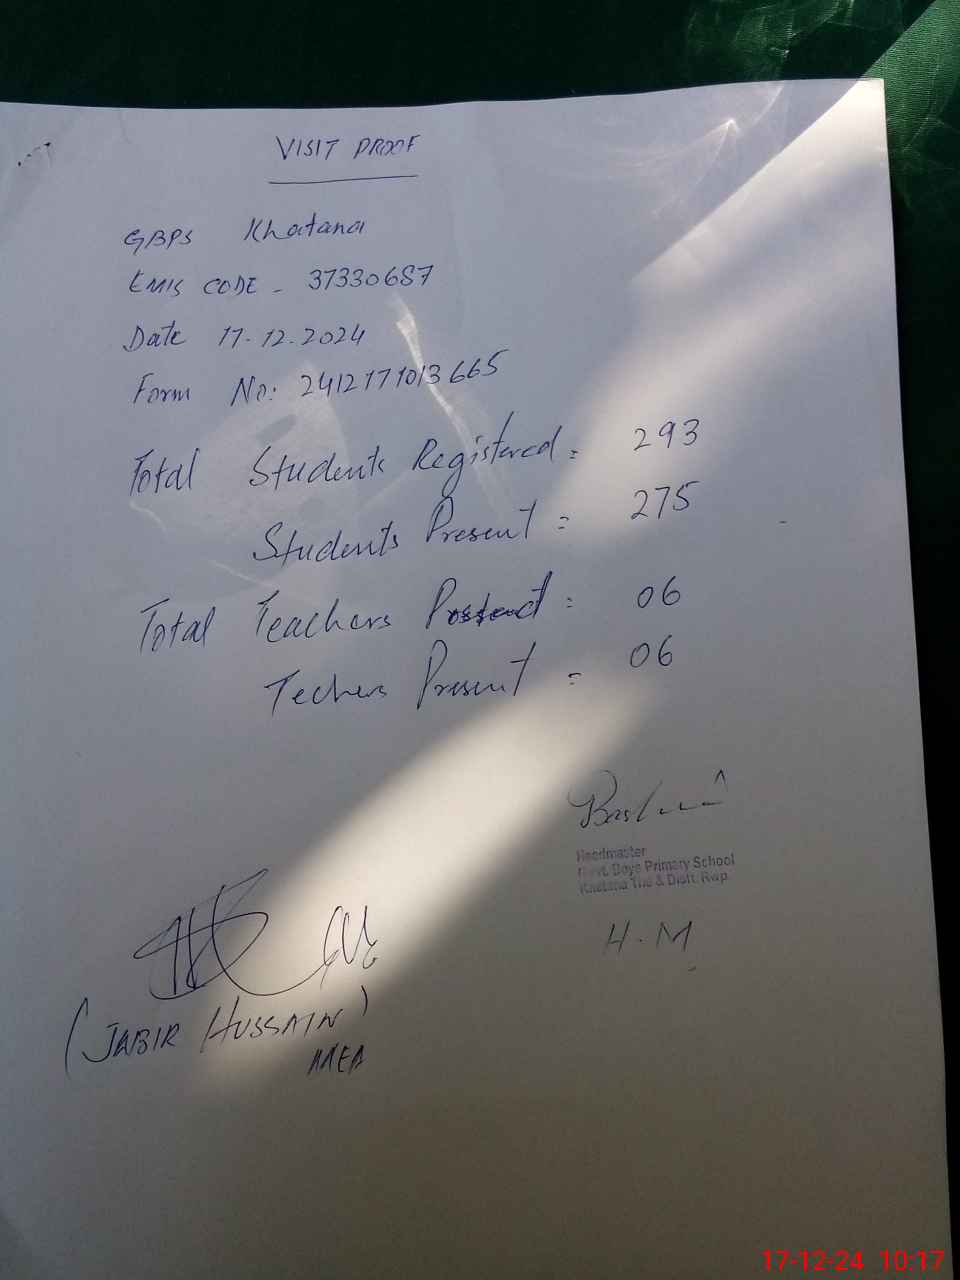 VISIT PROOF
GBPS Khatana
EMIS CODE - 37330687
Date 17.12.2024
Form No: 2412171013665
Total Students Registered = 293
Students Present = 275
Total Teachers = 06
Techers Present = 06
Headmaster
Govt. Boys Primary School
Khatana Teh & Distt. Rwp.
H.M
(JABIR HUSSAIN)
MEA
17-12-24 10:17